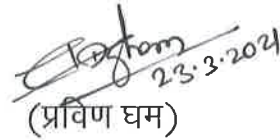 23.3.2021
(प्रविण घम)